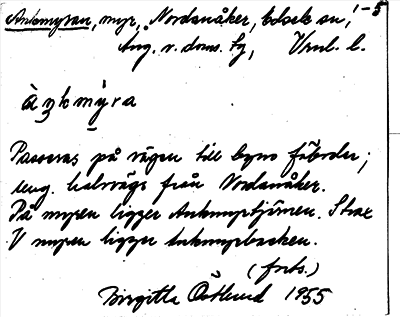 Ankmyran, myr, Nordanåker, Edsele sn, 1-5
Ång. v. doms. tg, Vnl. l.
ànkmýra
Passeras på vägen till byns fäbodar;
ung. halvvägs från Nordanåker.
På myren ligger Ankmyrtjärnen. Strax
V myren ligger Ankmyrbacken.
(forts.)
Birgitta Östlund 1955